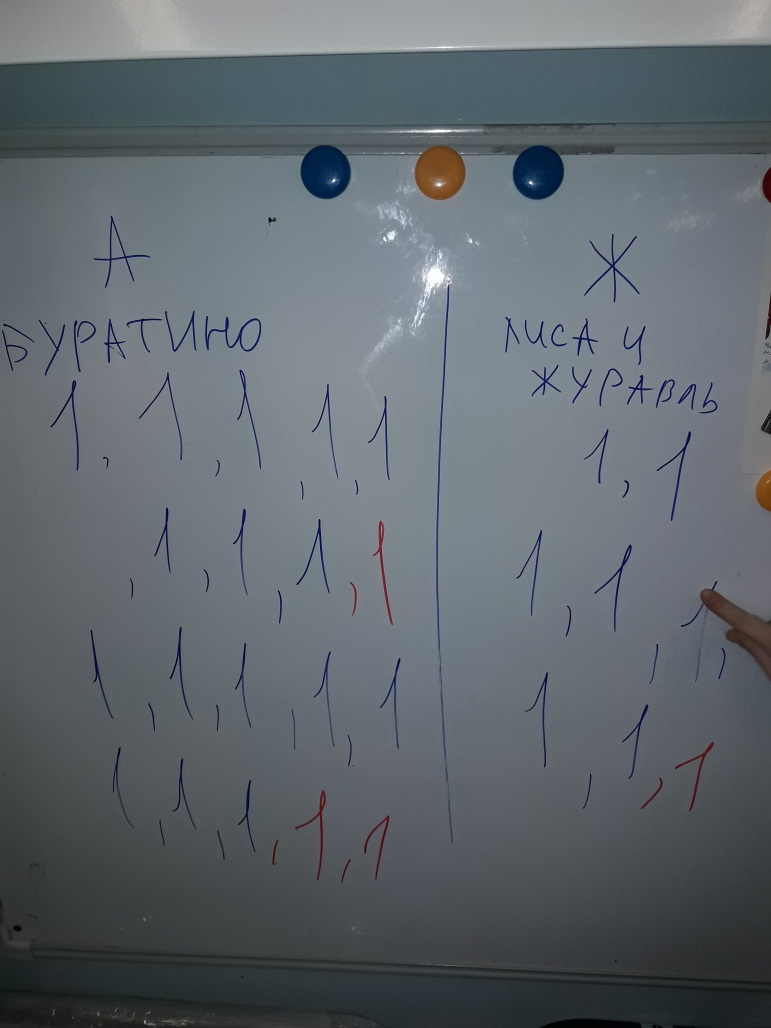 А
БУРАТИНО
1, 1, 1, 1, 1
, 1, 1, 1, 1
1, 1, 1, 1, 1
1, 1, 1, 1, 1
Ж
ЛИСА И
ЖУРАВЛЬ
1, 1
1, 1, 1,
1, 1, 1